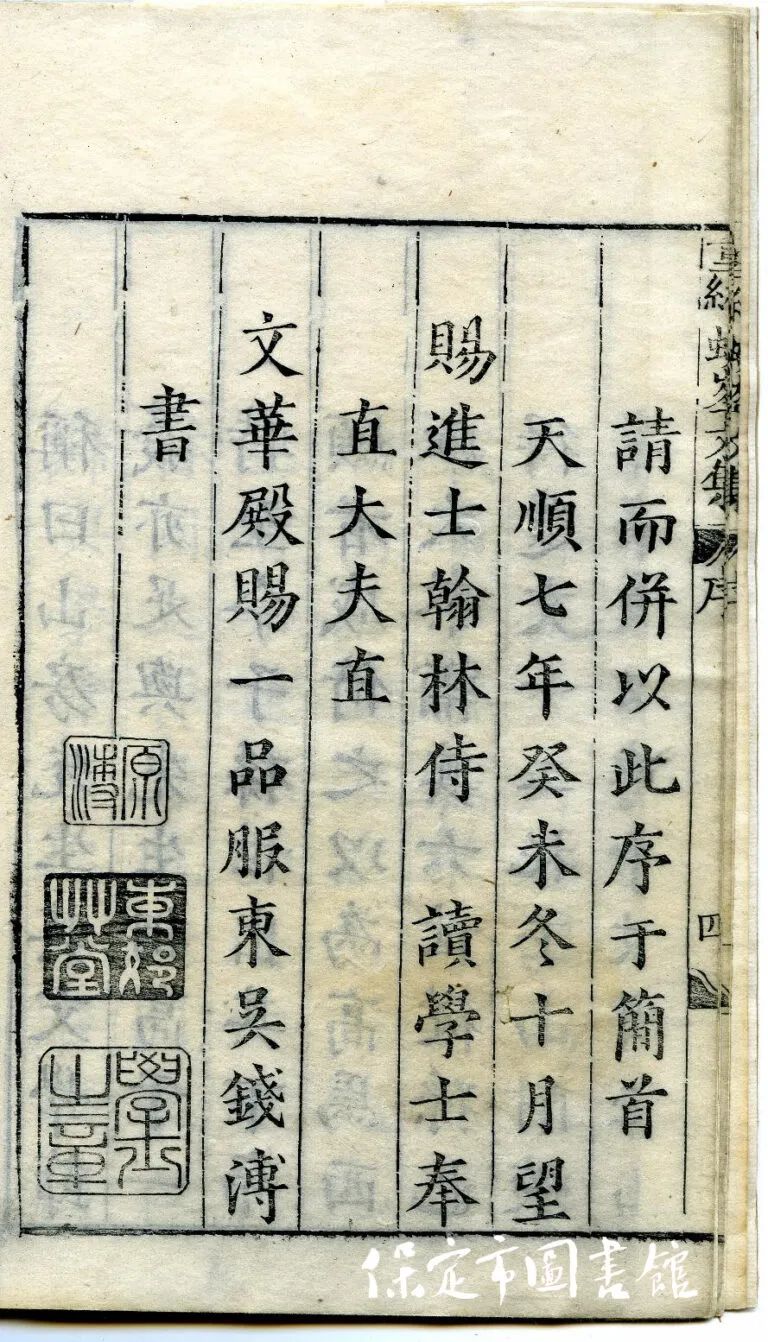 請而併以此序于簡首
天順七年癸未冬十月望
賜進士翰林侍讀學士奉
直大夫直
文華殿賜一品服東吳錢溥
書
原溥
東郊艸堂
學士之章
文集
序
四
保定市圖書館